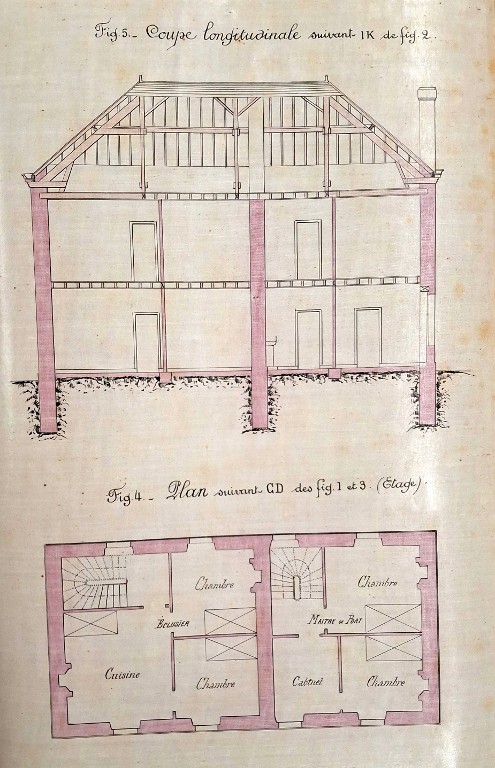 Fig. 3. _ Coupe longitudinale suivant IK de fig. 2.
Fig 4. _ Plan suivant CD des fig. 1 et 3. (Etage).
Chambre
Chambre
ECLUSIER
MAITRE DE PORT
Cuisine
Chambre
Cabinet
Chambre